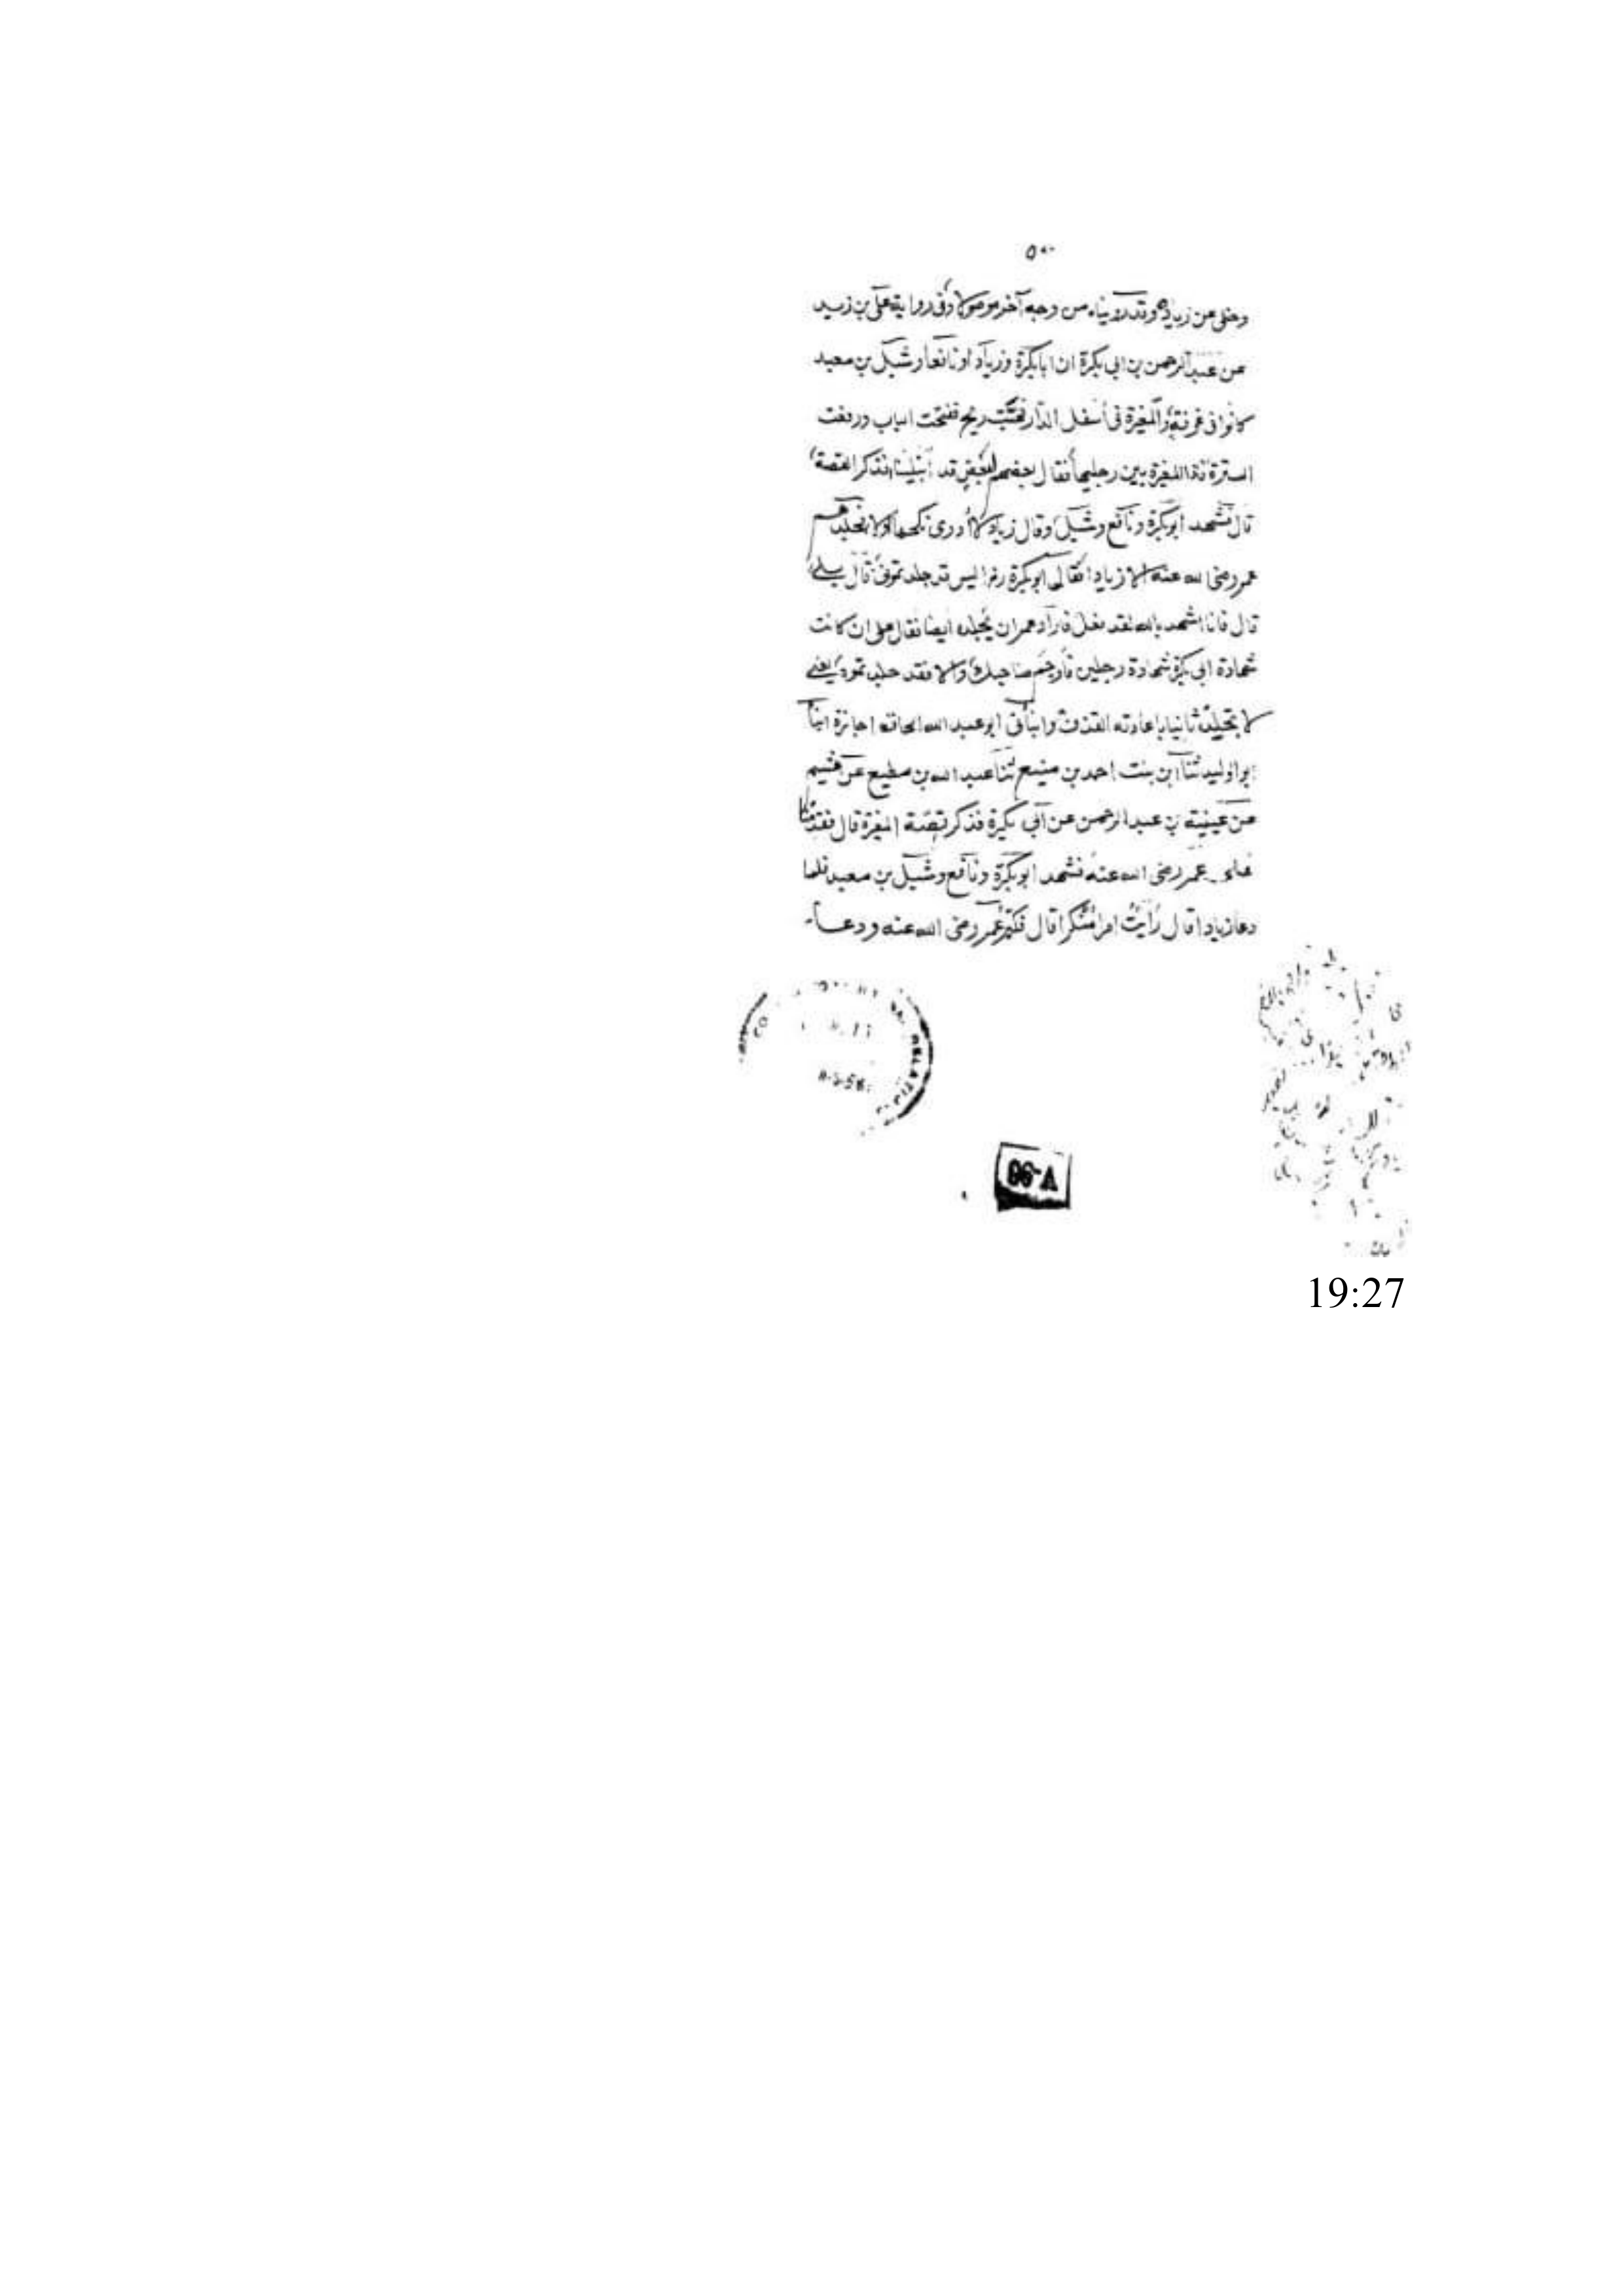 ٥٠٠
وخلى عن زياد وقد رويناه من وجه آخر موصولا وفى رواية على بن زيد
عن عبد الرحمن بن ابى بكرة ان ابا بكرة وزيادا ونافعا وشبل بن معبد
كانوا فى غرفة والمغيرة فى أسفل الدار فهبت ريح ففتحت الباب ورفعت
السترة فاذا المغيرة بين رجليها فقال بعضهم لبعض قد ابتلينا فذكر القصة
قال فشهد أبو بكرة ونافع وشبل وقال زياد لا أدرى نكحها أو لا فجلدهم
عمر رضى الله عنه الا زيادا فقال ابو بكرة رض أليس قد جلدتمونى قال بلى
قال فانا اشهد بالله لقد فعل فأراد عمر ان يجلده ايضا فقال على ان كانت
شهادة ابى بكرة شهادة رجلين فارجم صاحبك والا فقد جلدتموه يعنى
لا يجلد ثانيا باعادته القذف وانبأنى ابو عبد الله الحافظ اجازة انبأ
ابو الوليد ثنا ابن بنت احمد بن منيع ثنا عبد الله بن مطيع عن هشيم
عن عيينة بن عبد الرحمن عن أبى بكرة فذكر قصة المغيرة قال فقدمنا
على عمر رضى الله عنه فشهد ابو بكرة ونافع وشبل بن معبد فلما
دعا زيادا قال رأيت امرا منكرا قال فكبر عمر رضى الله عنه ودعا
8-5-58
V-98
19:27